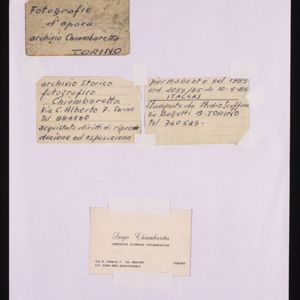 Fotografie
d'epoca
archivio Chiambaretta
TORINO
archivio Storico
fotografico
Chiambaretta
Via C. Alberto 7. Torino
Tel 884560
acquistate diritti di ripro
duzione ed esposizione
permanente nel 1985
ord. 1059/85 di 10-5-85
ITALGAS
Stampate da Studio
Via Bogetti 8. TORINO
Tel 740549-
Sergio Chiambaretta
ARCHIVIO STORICO FOTOGRAFICO
TORINO